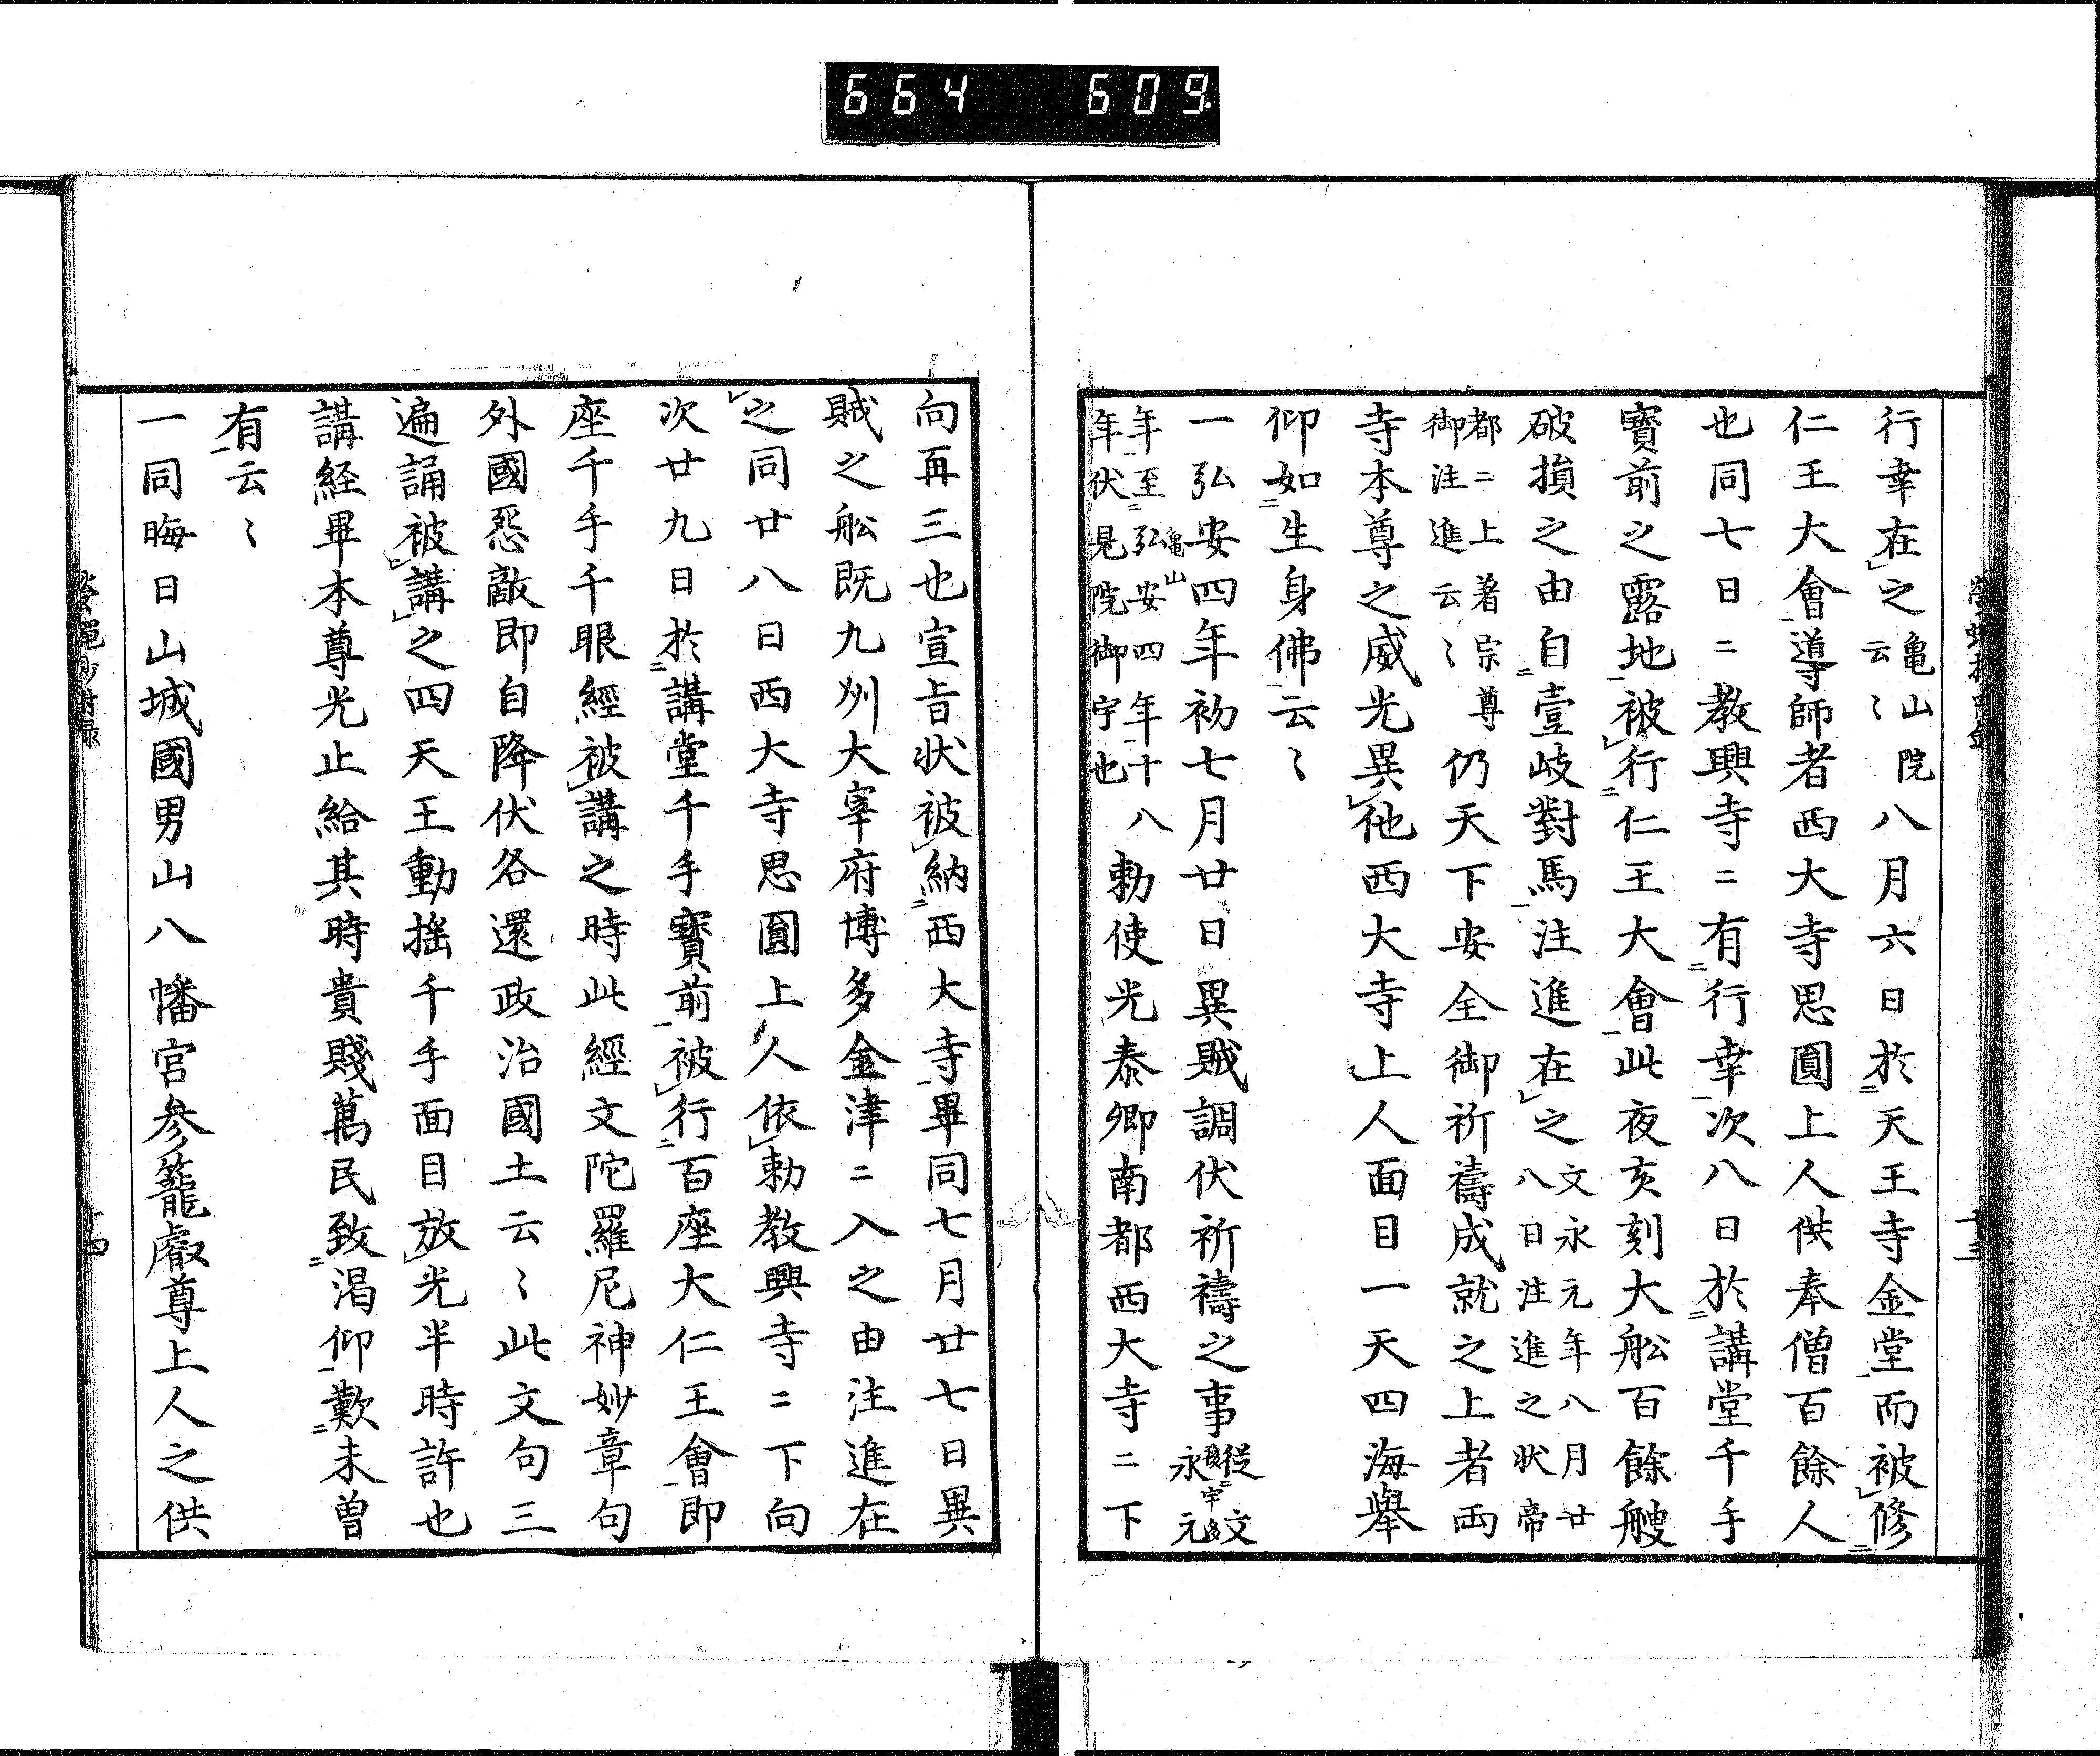 664 609
行幸在レ之 亀山院云〻 八月六日於二天王寺金堂一而被レ修二
仁王大會一導師者西大寺思圓上人供奉僧百餘人
也同七日ニ教興寺ニ有二行幸一次八日於二講堂千手
寳前之露地一被レ行二仁王大會一此夜亥刻大舩百餘艘
破損之由自二壹岐對馬一注進在レ之 文永元年八月廿八日注進之状帝
都ニ上著宗尊御注進云〻 仍天下安全御祈禱成就之上者両
寺本尊之威光異レ他西大寺上人面目一天四海擧
仰如二生身佛一云〻
一弘安四年初七月廿日異賊調伏祈禱之事 従二文永元
年一至二弘安四年一十八年伏見院御宇也 勅使光泰卿南都西大寺ニ下
向再三也宣旨状被レ納二西大寺一畢同七月廿七日異
賊之舩既九州大宰府博多金津ニ入之由注進在
レ之同廿八日西大寺思圓上人依レ勅教興寺ニ下向
次廿九日於二講堂千手寳前一被レ行二百座大仁王會一即
座千手千眼經被レ講之時此經文陀羅尼神妙章句
外國怨敵即自降伏各還政治國土云〻此文句三
遍誦被レ講レ之四天王動揺千手面目放レ光半時許也
講経畢本尊光止給其時貴賤萬民致二渇仰一歎二未曽
有一云〻
一同晦日山城國男山八幡宮参籠叡尊上人之供